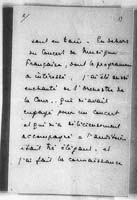 2/
sont en Baie. En dehors
du Concert de Musique
Française, dont le programme
a intéressé, j'ai été aussi
enchanté de l'Orchestre de
la Cour, qui m'avait
engagé pour un concert
et qui m'a délicieusement
accompagné. L'auditoire
était très élégant, et
j'ai fait la connaissance